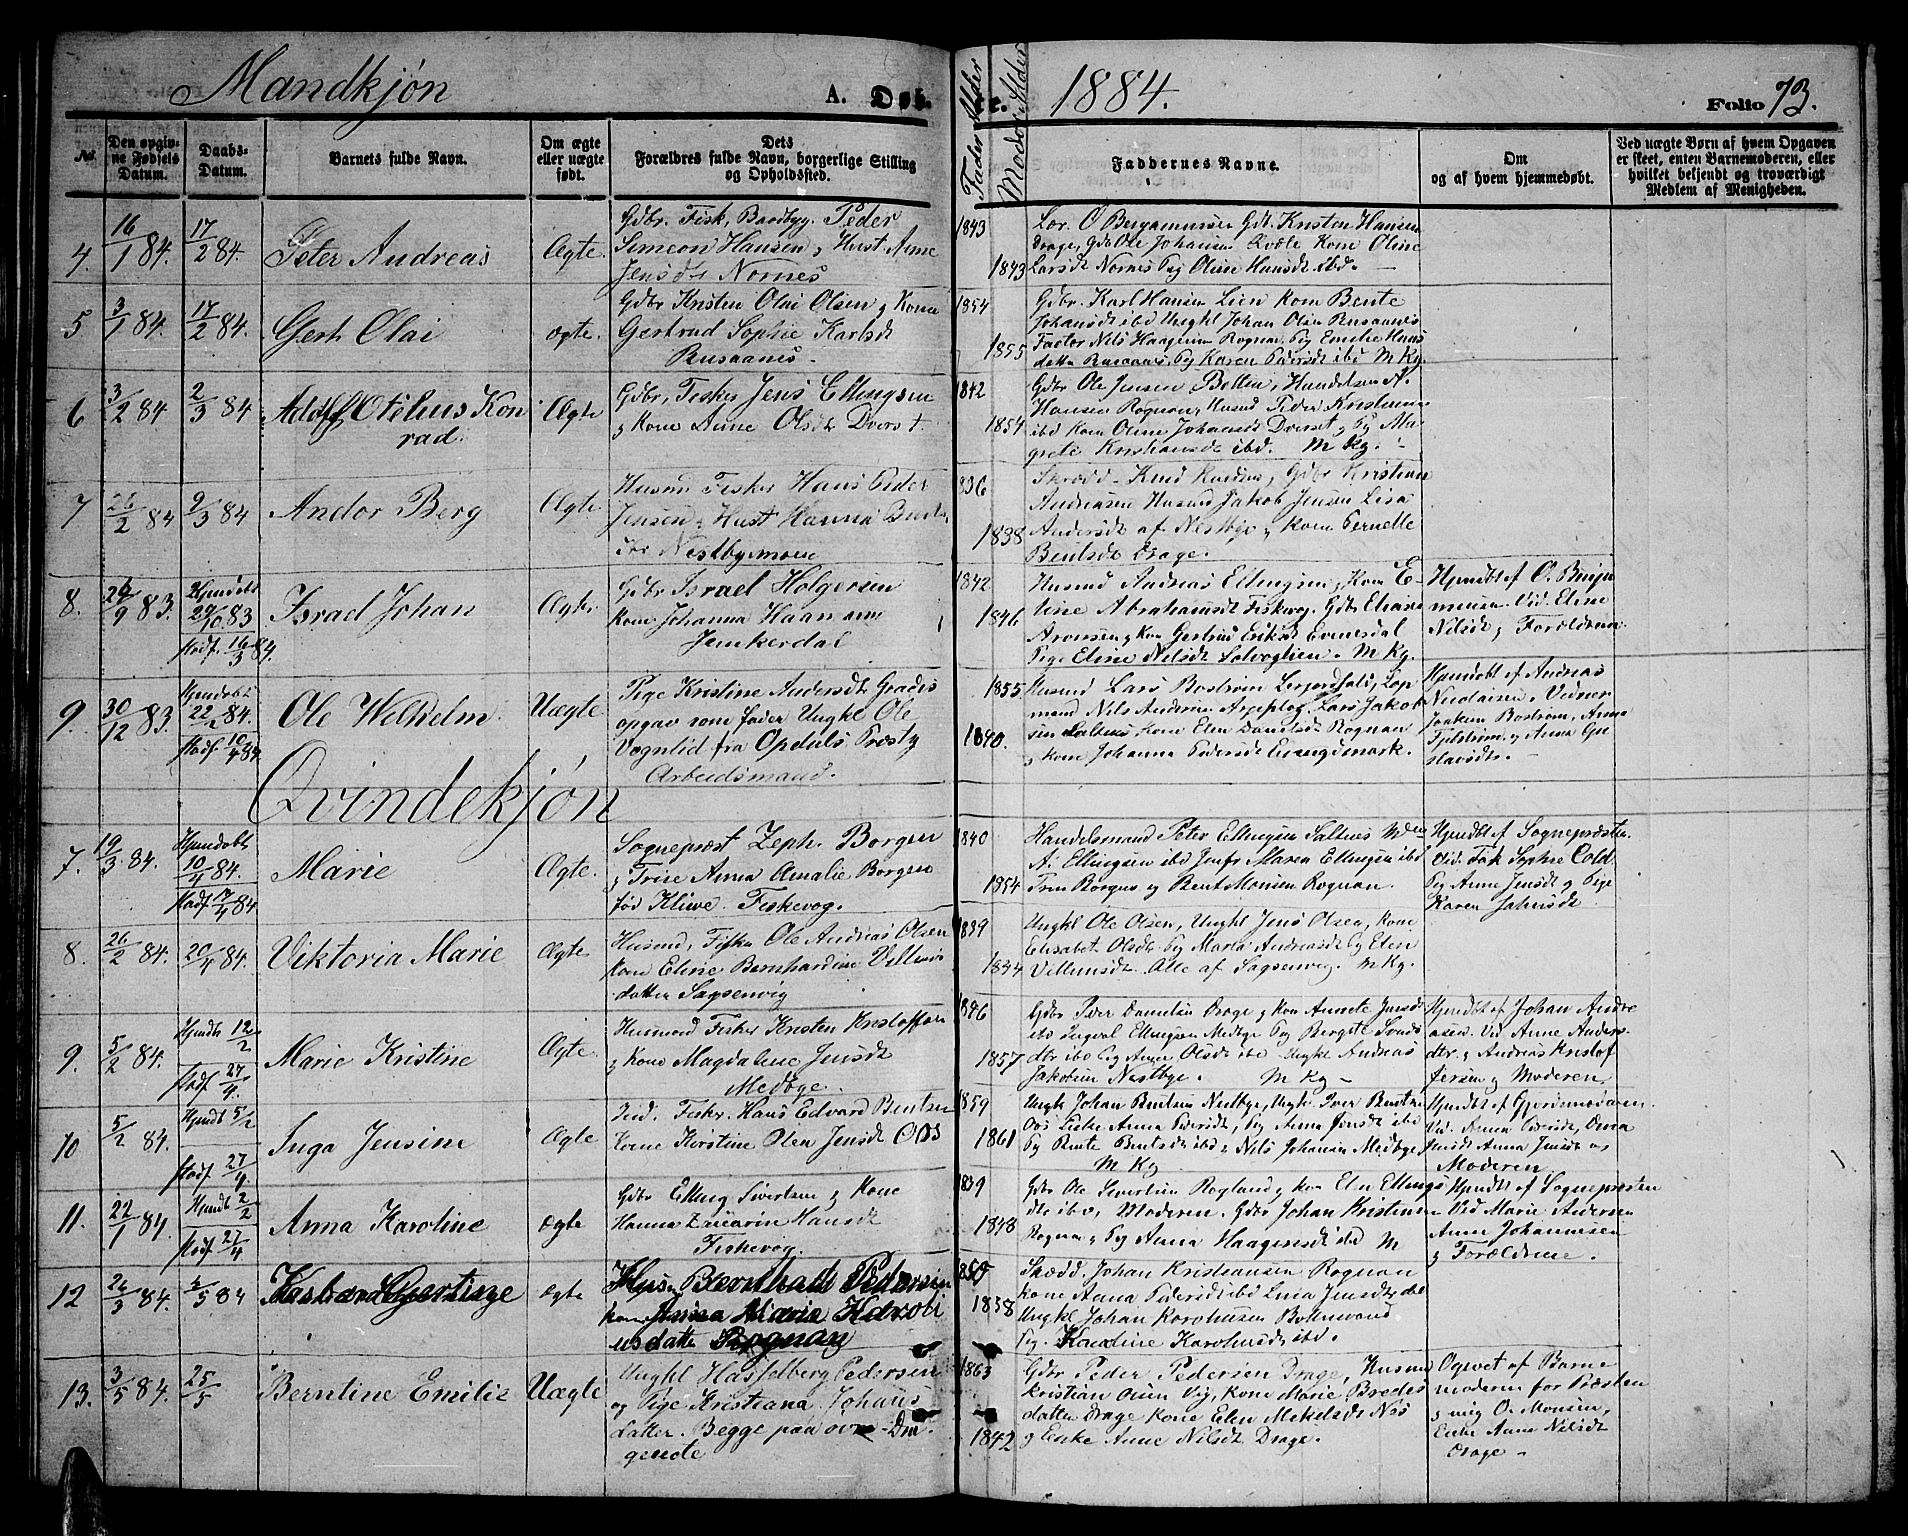 Mandkjøn
A. Døb
te.
1884.
Folio 73.
Fader Alder
Moder Alder
No.
Den opgiv-
ne Fødsels
Datum.
Daabs-
Datum.
Barnets fulde Navn.
Om ægte
eller uægte
født.
Dets
Forældres fulde Navn, borgerlige Stilling
og Opholdssted.
Faddernes Navne.
Om
og af hvem hjemmedøbt.
Ved uægte Børn af hvem Opgaven
er skeet, enten Barnemoderen, eller
hvilket beljendt og troværdigt
Medlem af Menigheden.
4. 16/1 84. 17/2 84. Peter Andreas Ægte.
Gdbr. Fisk, Baadbyg. Peder
Simeon Hansen, Hust Anne
Jensdt Nornes
1843
1843
Lor. O Bergamussen Gdt. Kristen Hansen
Drage, Gdb Ole Johansen Kvæle Kone Oline
Larsdt Nornes Pig Oline Hansdt ibd.
5 3/1 84. 17/2 84. Gert Olai ægte.
Gdbr Kristen Olai Olsen g Kone
Gertrud Sophie Karlsdt
Rusaanes
1854
1855
Gdbr. Karl Hansen Lien kone Bente
Johansdt ibd Ungkl Johan Olsen Rusaanes
Factor Nils Haagensen Rognan Pig Emelie Hans
datter Rusaanes, Pig Karen Pedersdt ibd M Kg.
6 3/2 84 2/3 84 Adolf Otelius Kon
rad. Ægte
Gdbr, Fisker Jens Ellingsen
g Kone Anne Olsdt Dverset
1842
1854
Gdbr Ole Jensen Botten, Handelsm A.
Hansen Rognan, Husmd Peder Kristiansen
ibd Kone Oline Johansdt Dverset g Pig Ma
grete Kristiansdt ibd. M Kg.
7 21/2 84 9/3 84 Andor Berg Ægte
Husmd Fisker Hans Peder
Jensen g Hust Hanna Bents
dtr Nestbymoen
1836
1838
Skrædd. Knud Knudsen, Gdbr Kristian
Andreasen Husmd Jakob Jensen Lisa
Andersdt af Nestbye g Kone Pernelle
Bentsdt Drage.
8. 29/9 83. Hjemdøbt
29/10 83
Stadf. 16/3 84. Israel Johan Ægte
Gdbr Israel Holgersen
Kone Johanna Haansen
Junkerdal
1842
1846
Husmd Andreas Ellingsen, Kone E-
line Abrahamsdt Fiskevog. Gdbr Elias
Aronsen g Kone Gertrud Eriksdt Evenesdal
Pige Eline Nilsdt Solvoglien. M Kg.
Hjemdbt af O. Benja
minsen. Vid. Eline
Nilsdt g Forældrene
9. 30/12 83. Hjemdøbt
22/2 84.
Stadf 10/4 84 Ole Wilhelm Uægte
Pige Kristine Andersdt Gradis
opgav som fader Ungkl Ole
Vogntid fra Opdals Præstg
Arbeidsmand.
1855
1840.
Husmd Lars Bostrøm Lerjordfald, Lap
mand Nils Andersen Arjeplog, Lars Jakob
sen Saltnes Kone Elen Danelsdt Rognan
g Kone Johanna Pedersdt Evensgdmark.
Hjemdbt af Andreas
Nicolaisen. Vidner
Joakim Bostrøm, Anna
Fjelstrøm g Anna Gu
stavsdtr.
Qvindekjøn
7. 19/3 84. Hjemdøbt
10/4 84.
Stadf 17/4 84. Marie Ægte.
Sognepræst Zeph. Borgen
g Trine Anna Amalie Borgen
fød Kliwe. Fiskevog.
1840
1854
Handelsmand Peter Ellingsen Saltnes
A. Ellingsen ibd Jmfr Maren Ellingsen ibd
Trin Borgen og Bent Monsen Rognan.
Hjemdbt af Sognepræsten
Vid. Frk Sophie Cold
Pig Anne Jensdt g Pige
Karen Johnsdt
8. 26/2 84. 20/4 84. Viktoria Marie Ægte
Husmd, Fisker Ole Andreas Olsen
kone Eline Bernhardine Villums
datter Saxsenvig
1839
1834
Ungkl Ole Olsen, Ungkl Jens Olsen, kone
Elisabet Olsdt Pig Maria Andreasdt Pig Elen
Villumsdt. Alle af Saxsenvig. M Kg.
9. 5/2 84. Hjemdbt 12/2
Stadf. 27/4. Marie Kristine Ægte
Husmand Fisker Kristen Kristoffersen
g Kone Magdalene Jensdt
Medbye.
1846
1857
Gdbr Peder Danielsen Drage g Kone Annete Jensdt
ibd Ingval Ellingsen Medbye Pig Bergete Svends
dtr ibd Pig Anne Olsdt ibd Ungkl Andreas
Jakobsen Nestbye. M Kg
Hjemdbt af Johan Andre
asen. Vid Anne Anders-
dtr. g Andreas Kristof
fersen g Moderen.
10 5/2 84. Hjemdbt 5/2
Stadf. 27/4 Inga Jensine Ægte
Fisker Hans Edvard Bentsen
Kone Kirstine Olea Jensdt Oxs
1859
1861
Ungk Johan Bentsen Nestbye, Ungk Iver Bentsen
Oxs Enke Anna Pedersdt, Pig Anna Jonsdt ibd
Pig Bente Bentsdt ibd g Nils Johansen Medbye
M Kg
Hjemdbt af Gjordmoderen
Vid. Anna Pedersdt, Oma
Jensdt Anna Jensdt og
Moderen.
11. 22/1 84. Hjemdt 2/2
Stadf. 27/4 Anna Karoline ægte
Gdbr Elling Sivertsen g Kone
Hanna Zacarine Hansdt
Fiskevog.
1839
1848
Gdbr Ole Sivertsen Rogland g Kone Elen Ellings
dtr ibd, Moderen. Gdbr Johan Kristiansen
Rognan g Pig Anna Haagensdt ibd M
Hjemdt af Sognepræsten
Vid Marie Andersen
Anne Johannesen
g Forældrene.
12 24/3 84. 4/5 84 ægte
Hans Bernhadt Pedersen
Kone Anna Maria Karoli
usdatter Rognan
1850
1858
Skrædd. Johan Kristiansen Rognan
Kone Anna Pedersdt ibd Lina Jensdt ibd
Ungkl Johan Karolussen Botnvand
Pig. Karoline Karolusdt ibd.
13. 3/5 84. 25/5 Berntine Emilie Uægte
Ungkl Hasselberg Pedersen
og Pige Kristiana Johans
datter. Begge paa ovre Dra-
gende
1863
1842
Gdbr Peder Pedersen Drage, Husmd
Kristian Olsen Vig, Kone Marie Bredes
datter Drage Kone Elen Mekelsdt Nes
g Enke Anne Nilsdt Drage.
Ogivet af Barne
moderen for Præsten
g mig O. Monsen,
Enke Anne Nilsdt
Drage